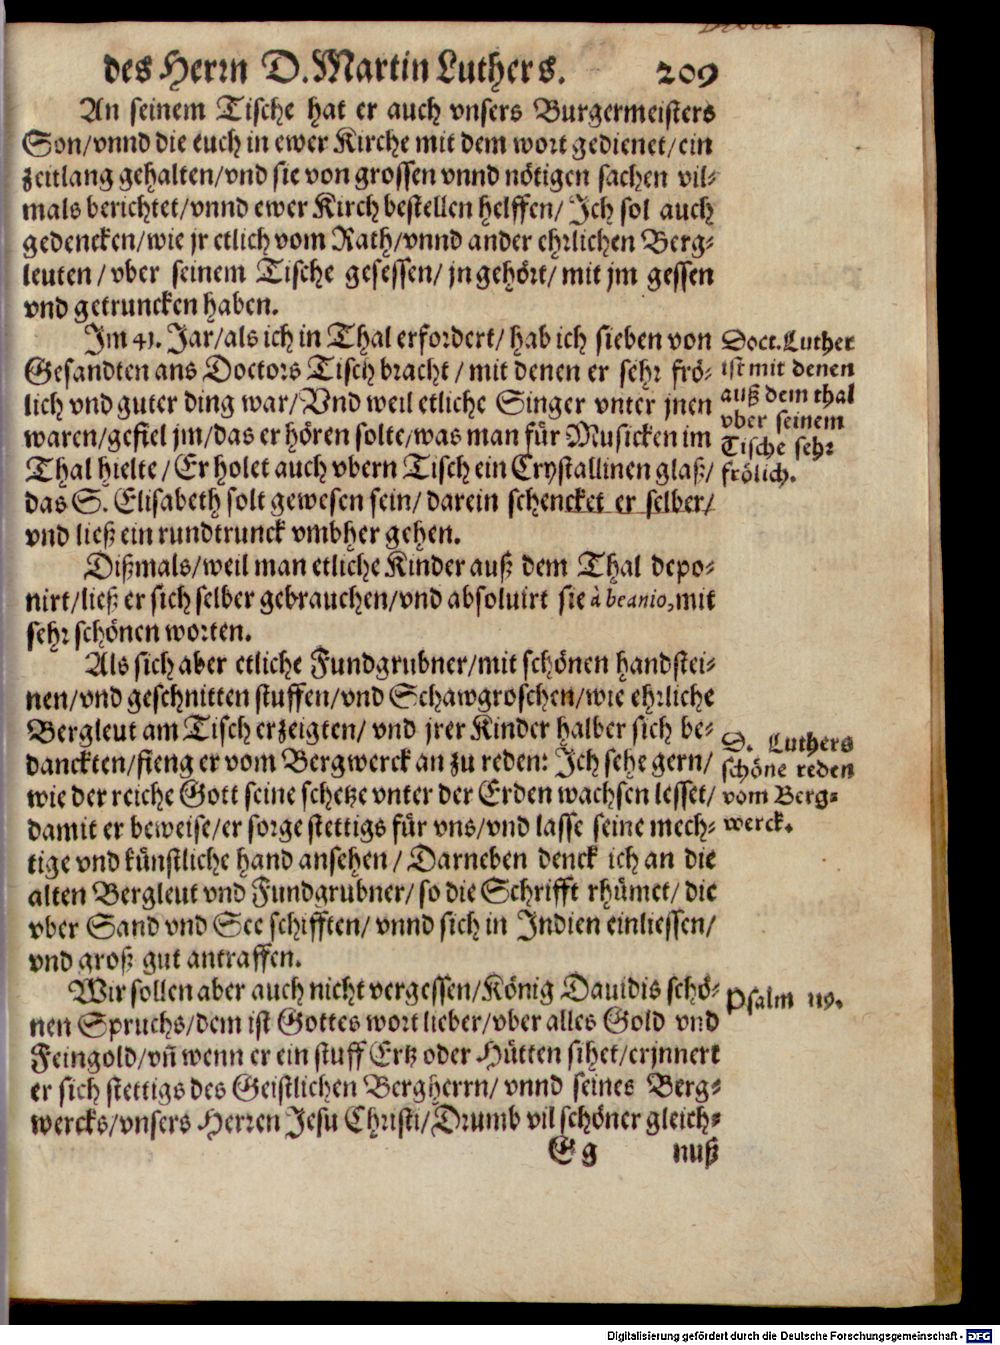 des Herrn D. Martin Luthers. 209
An seinem Tische hat er auch vnsers Burgermeisters
Son/vnnd die euch in ewer Kirche mit dem wort gedienet/ein
zeitlang gehalten/vnd sie von grossen vnnd nötigen sachen vil-
mals berichtet/vnnd ewer Kirch bestellen helffen/ Ich sol auch
gedencken/wie jr etlich vom Rath/vnnd ander ehrlichen Berg-
leuten/ vber seinem Tische gesessen/ jn gehört/ mit jm gessen
vnd getruncken haben.
Im 41. Jar/als ich in Thal erfordert/ hab ich sieben von
Gesandten ans Doctors Tisch bracht / mit denen er sehr frö-
lich vnd guter ding war/Vnd weil etliche Singer vnter jnen
waren/gefiel jm/das er hören solte/was man für Musicken im
Thal hielte / Er holet auch vbern Tisch ein Crystallinen glaß/
das S. Elisabeth solt gewesen sein/ darein schencket er selber/
vnd ließ ein rundtrunck vmbher gehen.
Doct. Luther
ist mit denen
auß dem thal
vber seinem
Tische sehr
frölich.
Dißmals/weil man etliche Kinder auß dem Thal depo-
nirt/ließ er sich selber gebrauchen/vnd absoluirt sie à beanio, mit
sehr schönen worten.
Als sich aber etliche Fundgrubner/mit schönen handstei-
nen/vnd geschnitten stuffen/vnd Schawgroschen/wie ehrliche
Bergleut am Tisch erzeigten/ vnd jrer Kinder halber sich be-
danckten/fieng er vom Bergwerck an zu reden: Ich sehe gern/
wie der reiche Gott seine schetze vnter der Erden wachsen lesset/
damit er beweise/er sorge stettigs für vns/vnd lasse seine mech-
tige vnd künstliche hand ansehen/ Darneben denck ich an die
alten Bergleut vnd Fundgrubner/ so die Schrifft rhümet/ die
vber Sand vnd See schifften/ vnnd sich in Indien einliessen/
vnd groß gut antraffen.
D. Luthers
schöne reden
vom Berg-
werck.
Wir sollen aber auch nicht vergessen/König Dauidis schö-
nen Spruchs/dem ist Gottes wort lieber/vber alles Gold vnd
Feingold/vñ wenn er ein stuff Ertz oder Hütten sihet/erjnnert
er sich stettigs des Geistlichen Bergherrn/ vnnd seines Berg-
wercks/vnsers Herren Jesu Christi/Drumb vil schöner gleich-
Psalm 119.
Gg nuß
Digitalisierung gefördert durch die Deutsche Forschungsgemeinschaft - DFG